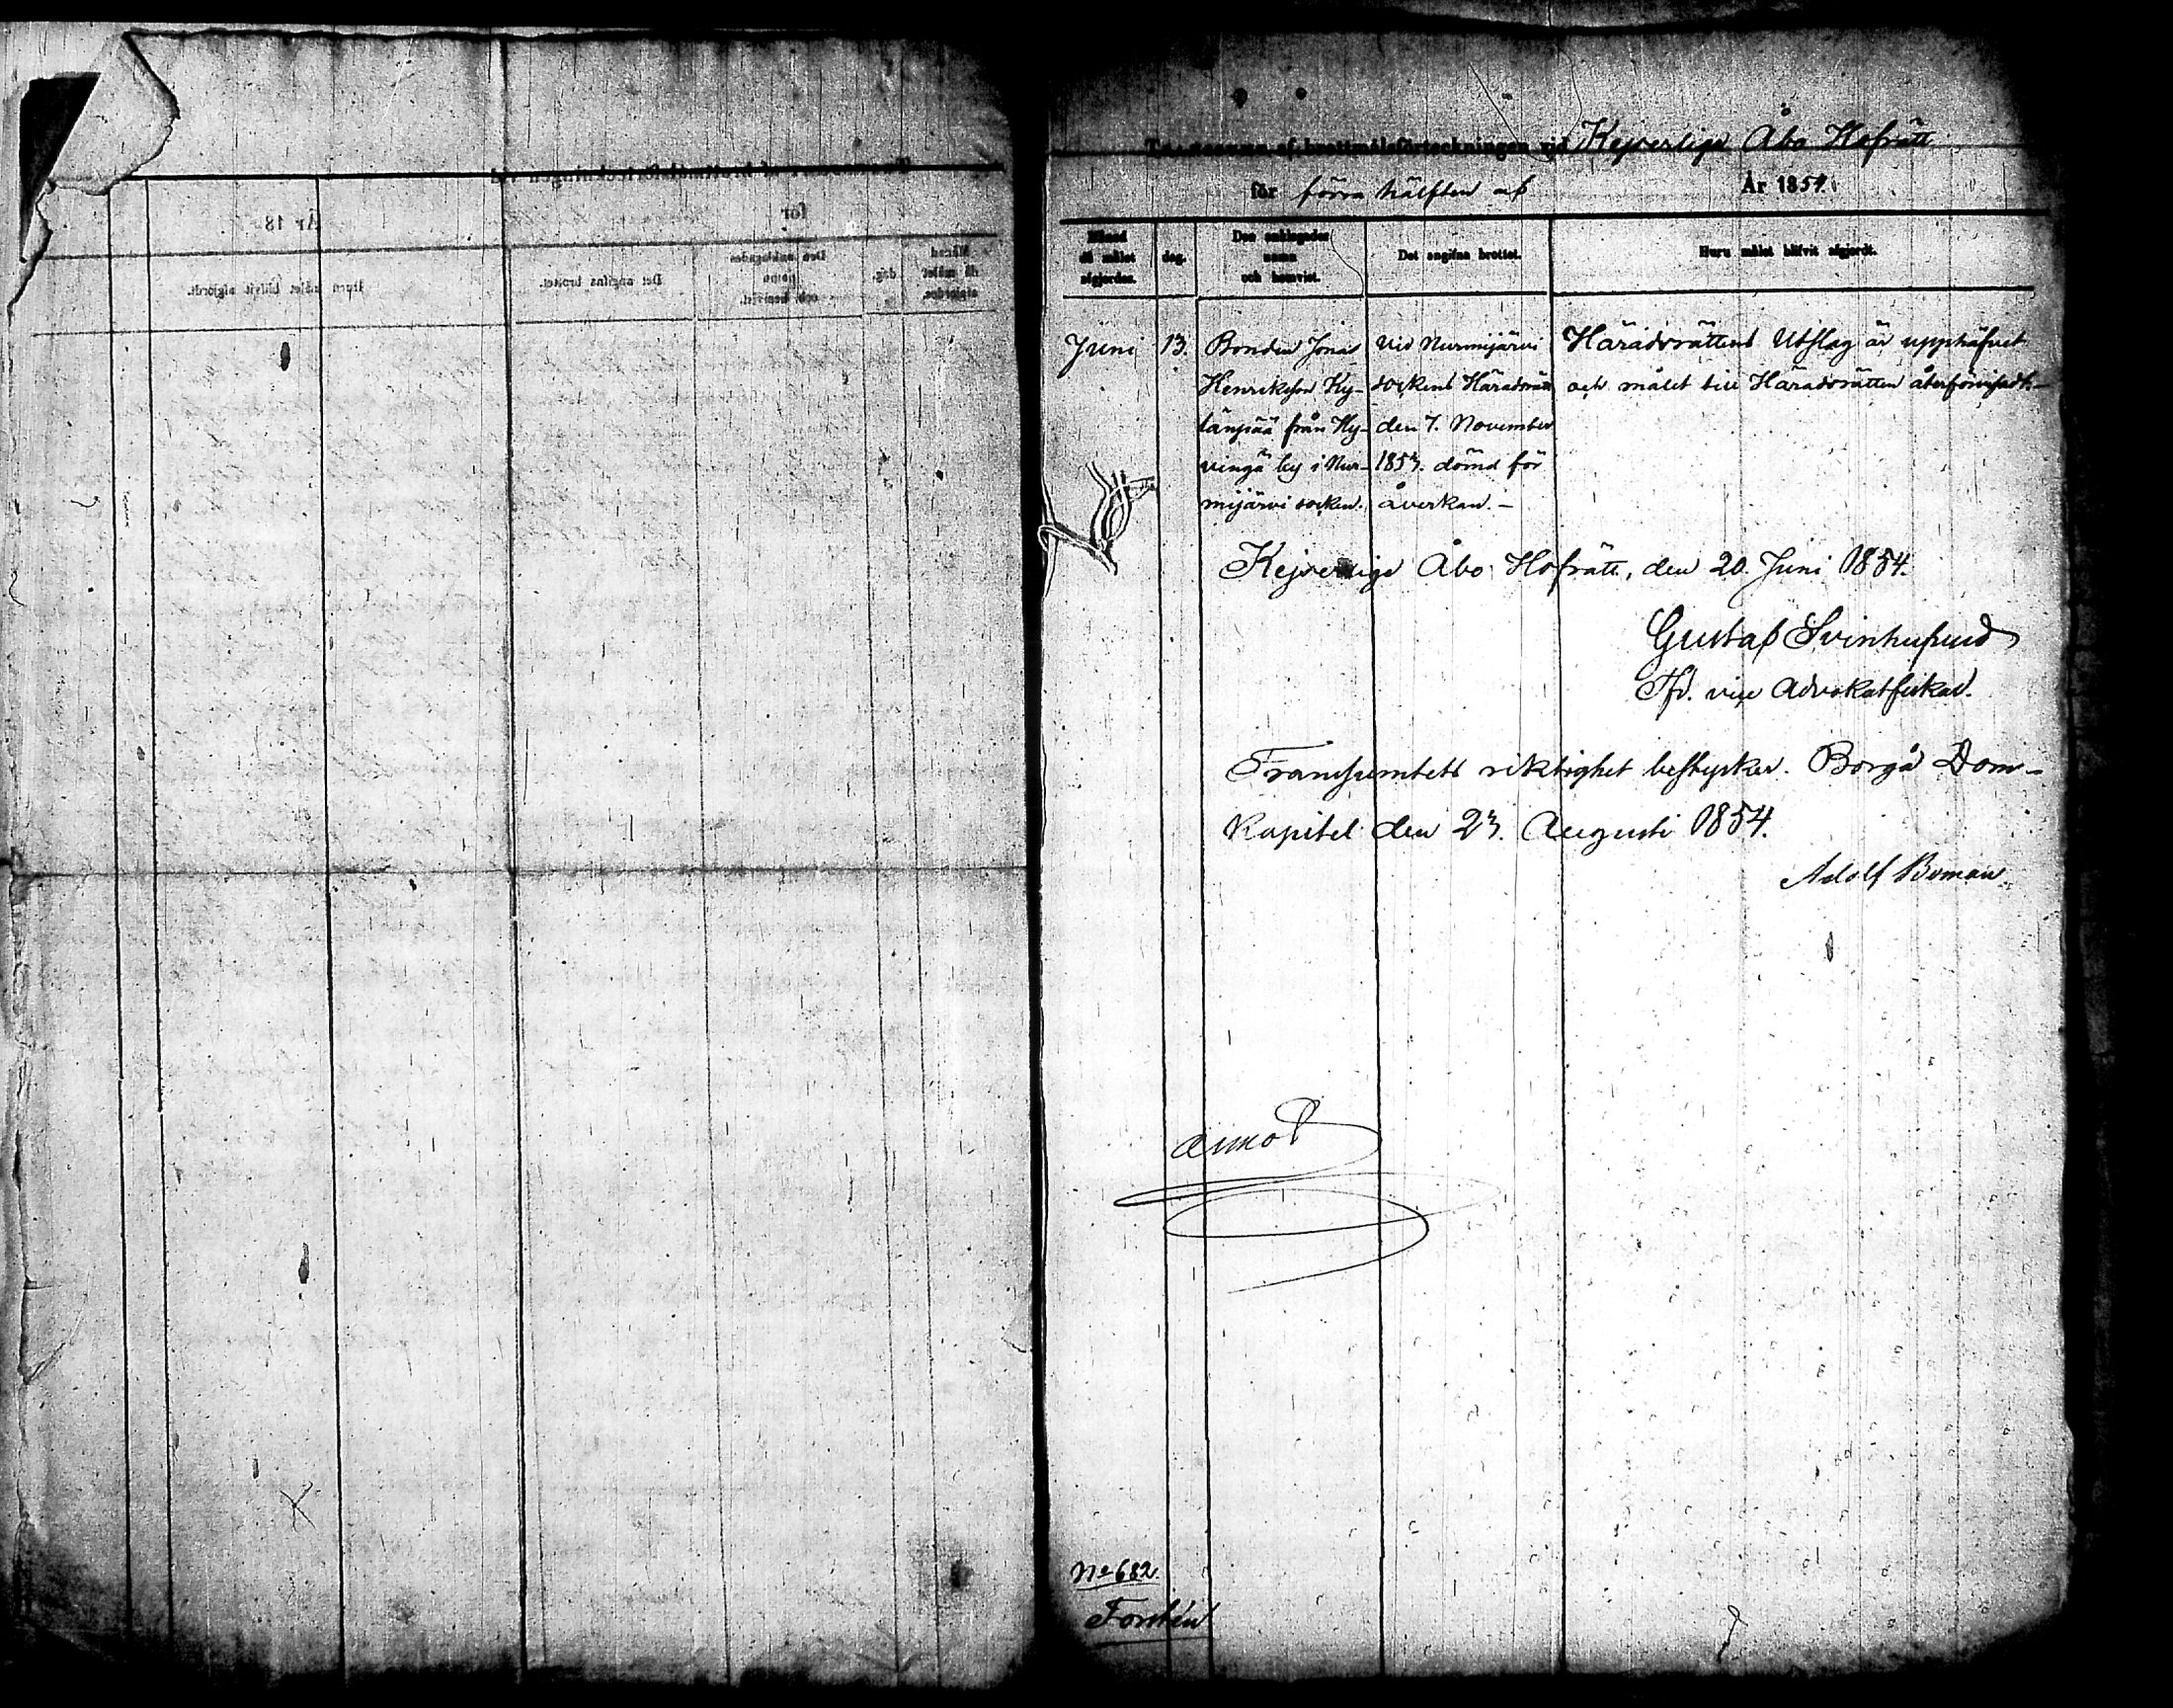 af brottmålsförteckningen vid Kejserliga Åbo Hofrätt
för förra hälften af År 1854.
Månad då målet afgjordes.
dag.
Den anklagades namn och hemvist.
Det angifna brottet.
Huru målet blifvit afgjordt.
Juni 13.
Bonden Jonas
Henriksson Ky-
tänpää från Hy-
vingä by i Nur-
mijärvi socken.
vid Nurmijärvi
sockens Häradsrätt
den 7. November
1853. dömd för
åverkan. –
Häradsrättens Utslag är upphäfvet
och målet till Häradsrätten återförvisadt. –
Kejserliga Åbo Hofrätt, den 20. Juni 1854.
Gustaf Svinhufvud
Tfd. vice Advokatfiskal.
Transsumtets riktighet bestyrker. Borgå Dom-
Kapitel den 23. Augusti 1854.
Adolf Boman.
No 682.
Forstén